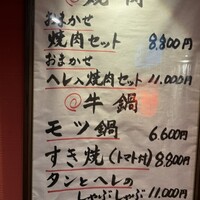 ◎焼肉
おまかせ
焼肉セット 8,800円
おまかせ
ヘレ入焼肉セット 11,000円
◎牛鍋
モツ鍋 6,600円
すき焼(トマト付) 8,800円
タンとヘレの
しゃぶしゃぶ 11,000円